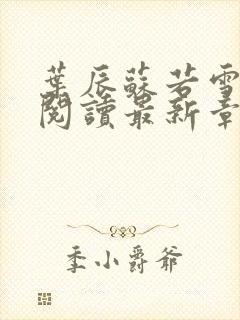 葉辰蘇若雪
閱讀最新章
季小爵爺